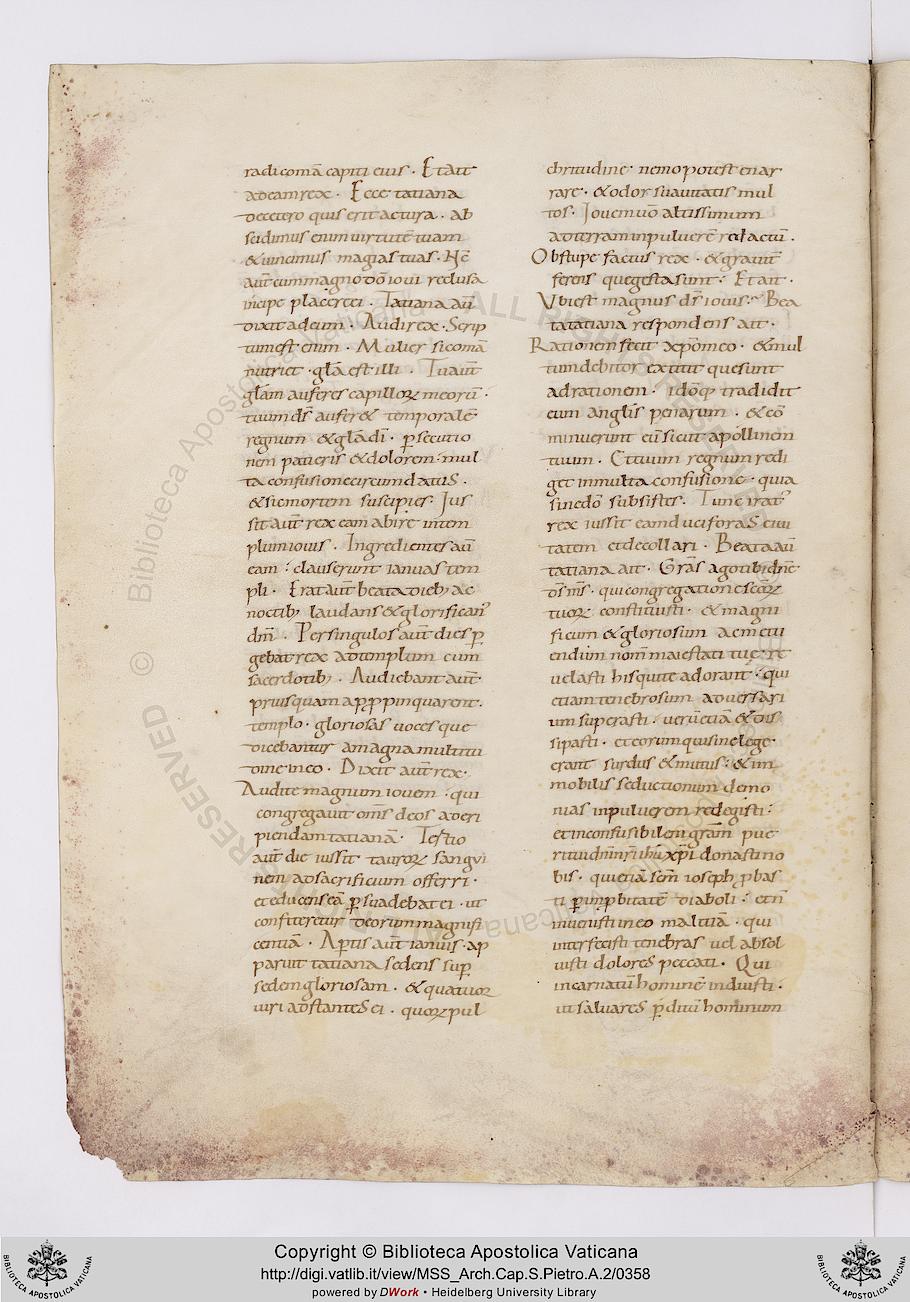 radi comā capiti eius · Et ait
ad eam rex · Ecce tatiana
decetero quis erit actura · ab
scidimus enim uirtutē tuam
& uincimus magias tuas · Nc̄
aut̄ cum magno dō ioui reclusa
incipe placere ei · Tatiana aū
dixit ad eum · Audi rex · Scrip
tum est enim · Mulier si comā
nutriet · gl̄a est illi · Tu aut̄
gl̄am auferes capilloꝝ meorū ·
tuum dꞅ̄ aufer& temporale
regnum & gl̄a dī · ꝑsecutio
nem patieris & dolorem · mul
ta confusione circumdatus ·
& sic mortem suscipies · Jus
sit aut̄ rex eam abire in tem
plum iouis · Ingredientes aū
eam : clauserunt ianuas tem
pli · Erat aut̄ beata dieb; ac
noctib; laudans & glorifican
dm̄ · Per singulos aut̄ dies ꝑ
gebat rex ad templum cum
sacerdotib; · Audiebant aut̄
priusquam appropinquarent ·
templo · gloriosas uoces que
dicebantur a magna multitu
dine in eo · Dixit aut̄ rex ·
Audite magnum iouem · qui
congregauit om̄s deos ad eri
piendam tatianā · Tertio
aut̄ die iussit tauroꝝ sangui
nem ad sacrificium offerri ·
et educens eā ꝑsuadebat ei · ut
confiteretur deorum magnifi
centiā · Aꝑtis aut̄ ianuis · ap
paruit tatiana sedens suꝑ
sedem gloriosam · & quatuor
uiri adstantes ei · quoꝝ pul
chritudine · nemo potest enar
rare · & odor suauitatis mul
tos · Iouem uō altissimum
ad terram in puluerē redactū ·
Obstupefactus rex · & grauit̄
ferens que gesta sunt : Et ait ·
Vbi est magnus dꞅ̄ iouis · Bea
ta tatiana respondens ait ·
Rationem fecit xp̄o meo · & mul
tum debitor extitit quesiuit
ad rationem · idōq; tradidit
eum angl̄is penarum · & cō
minuerunt eū sicut apollinem
tuum · Et tuum regnum redi
get in multa confusione · quia
sine dō subsistes · Tunc irat᾽
rex iussit eam duci foras ciui
tatem et decollari · Beata aū
tatiana ait · Gr̄as ago tibi dn̄e
ds̄ ms̄ · qui congregationes scōꝝ
tuoꝝ constituisti · & magni
ficum & gloriosum ac metu
endum nom̄ maiestati tue · re
uelasti his qui te adorant · qui
etiam tenebrosum aduersari
um superasti · uerū etiā & dis
sipasti · et eorum qui sine lege
erant surdus & mutus · & im
mobilis seductionum demo
nias in puluerem redegisti :
et inconfusibilem gram̄ pue
ritui dn̄i nr̄i ihū xp̄i donasti no
bis · qui etiā sc̄m ioseph ꝓbas
ti ꝑ inꝓbitatē diaboli : et n̄
inuenisti in eo malitiā · qui
interfecisti tenebras uel absol
uisti dolores peccati · Qui
incarnatū hominē induisti ·
ut saluares ꝑditū hominum
Copyright © Biblioteca Apostolica Vaticana
http://digi.vatlib.it/view/MSS_Arch.Cap.S.Pietro.A.2/0358
powered by DWork • Heidelberg University Library